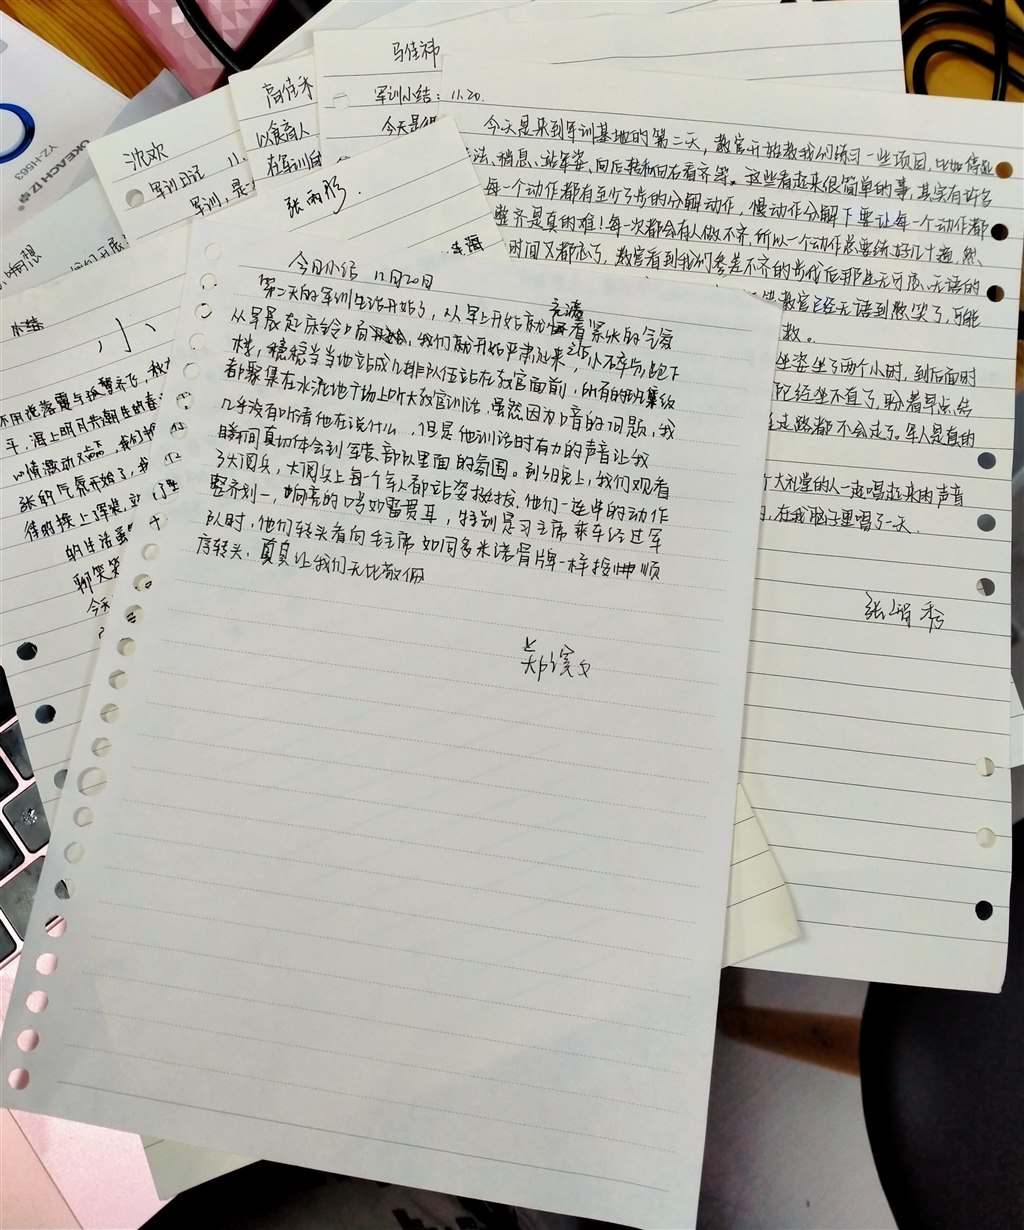 马佳祎
军训小结：11.20.
今天是
高佳
以食商人
在军训
沈欢
军训日记 11.
军训，
张雨
今天是来到军训基地的第二天，教官开始教我们练习一些项目，比如停止
法、稍息、站军姿、向后转和向右看齐等。这些看起来很简单的事，其实有许多
每一个动作都有至少3步的分解动作，慢动作分解下要让每一个动作都
整齐是真的难！每一次都会有人做不齐，所以一个动作总要练好几十遍，然
时间又都忘了，教官看到我们参差不齐的步伐后那些无可奈、无语的
教官已经无语到憋笑了，可能
数。
坐姿坐了两个小时，到后面时
已经坐不直了，盼着早点结
走路都不会走了。军人是真的
个大礼堂的人一起唱起来的声音
，在我脑子里唱了一天
张 秀
今日小结 11月20日
第二天的军训生活开始了，从早上开始就弥漫着紧张的气氛
从早晨起床铃口响，我们就开始严肃起来，小碎步跑下
楼，稳稳当当地站成几排队伍站在教官面前，所有的班集级
都聚集在水流地广场上听大教官训话，虽然因为口音的问题，我
几乎没有听清他在说什么，但是他训话时有力的声音让我
瞬间真切体会到军营部队里面的氛围。到了晚上，我们观看
了大阅兵，大阅兵上每个军人都站姿挺拔，他们一连串的动作
整齐划一，响亮的口号如雷贯耳，特别是习主席乘车经过军
队时，他们转头看向毛主席如同多米诺骨牌一样按照顺
序转头，真真让我们无比敬佩
小结
不用说落霞与孤鹜齐飞，秋
平，海上明月共潮生的春
心情激动又忐忑，我们
张的气氛开始了，我
待的换上浑装，
的生活
聊笑
今天
OKEACH 亿卓
YZ-H5563